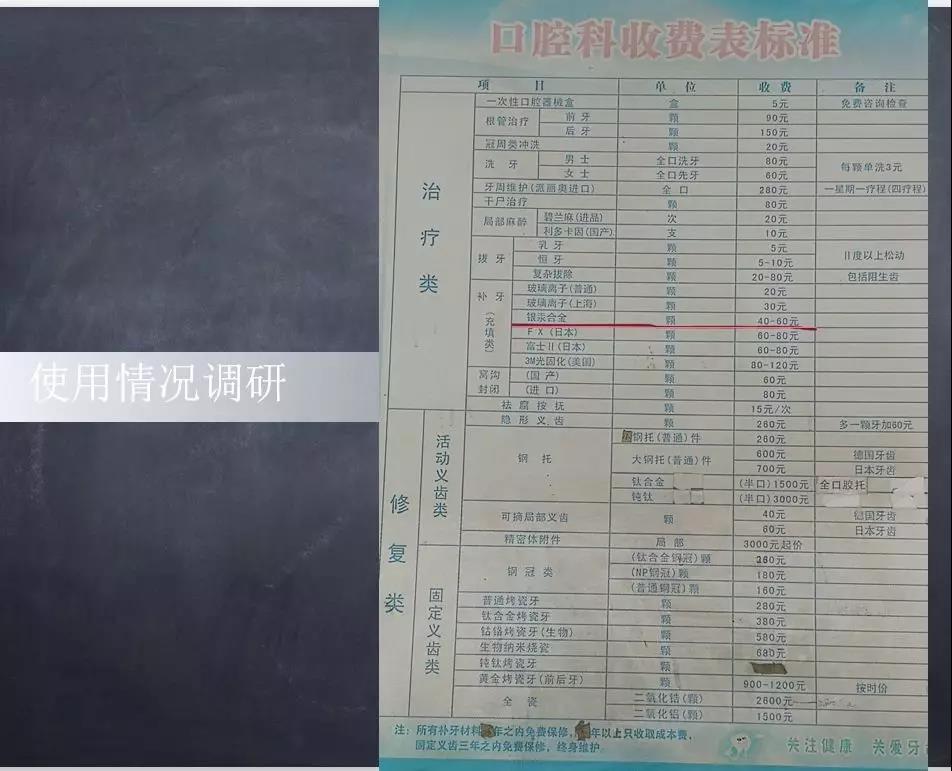 使用情况调研
口腔科收费表标准
项 目 单 位 收 费 备 注
治疗类
一次性口腔器械盒 盒 5元 免费咨询检查
根管治疗 前牙 颗 90元
后牙 颗 150元
冠周类冲洗 颗 20元
洗牙 男士 全口洗牙 80元 每颗单洗3元
女士 全口先牙 60元
牙周维护(派丽奥进口) 全口 280元 一星期一疗程(四疗程)
干尸治疗 颗 80元
局部麻醉 碧兰麻(进品) 次 20元
利多卡因(国产) 支 10元
拔牙 乳牙 颗 5元 II度以上松动
恒牙 颗 5-10元
复杂拔除 颗 20-80元 包括阻生齿
补牙(充填类) 玻璃离子(普通) 颗 20元
玻璃离子(上海) 颗 30元
银汞合金 颗 40-60元
FX(日本) 颗 60-80元
富士II(日本) 颗 60-80元
3M光固化(美国) 颗 80-120元
窝沟封闭 (国产) 颗 60元
(进口) 颗 80元
祛腐按抚 颗 15元/次
修复类
活动义齿类
隐形义齿 颗 260元 多一颗牙加60元
钢托 钢托(普通)件 260元
大钢托(普通)件 600元 德国牙齿
700元 日本牙齿
钛合金 (半口)1500元 全口胶托
钝钛 (半口)3000元
可摘局部义齿 颗 40元 德国牙齿
60元 日本牙齿
精密体附件 局部 3000元起价
固定义齿类
钢冠类 (钛合金钢冠)颗 260元
(NP钢冠)颗 180元
(普通钢冠)颗 160元
普通烤瓷牙 颗 280元
钛合金烤瓷牙 颗 380元
钴铬烤瓷牙(生物) 颗 580元
生物纳米烧瓷 颗 680元
钝钛烤瓷牙 颗
黄金烤瓷牙(前后牙) 颗 900-1200元 按时价
全瓷 二氧化锆(颗) 2600元
二氧化铝(颗) 1500元
注:所有补牙材料年之内免费保修,年以上只收取成本费,
固定义齿三年之内免费保修,终身维护。
关注健康 关爱牙